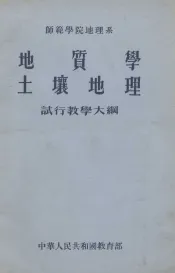 師範學院地理系
地質學
土壤地理
試行教學大綱
中華人民共和國教育部